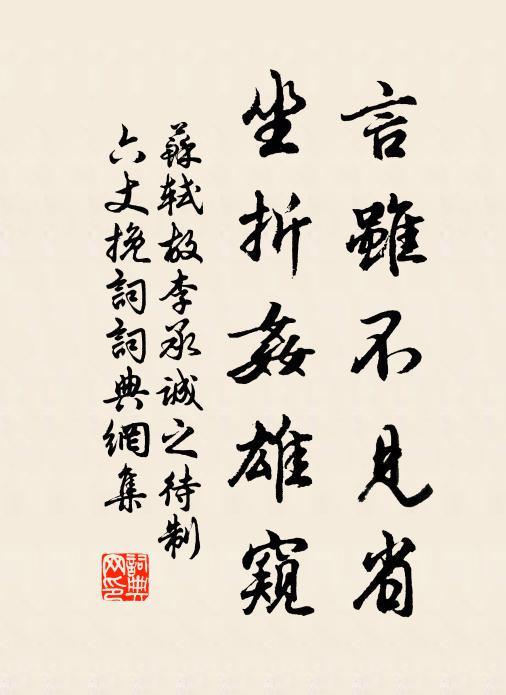 言雖不見省
坐折姦雄窺
蘇軾故李承誠之待制
六丈挽詞詞典網集
詞典
网印